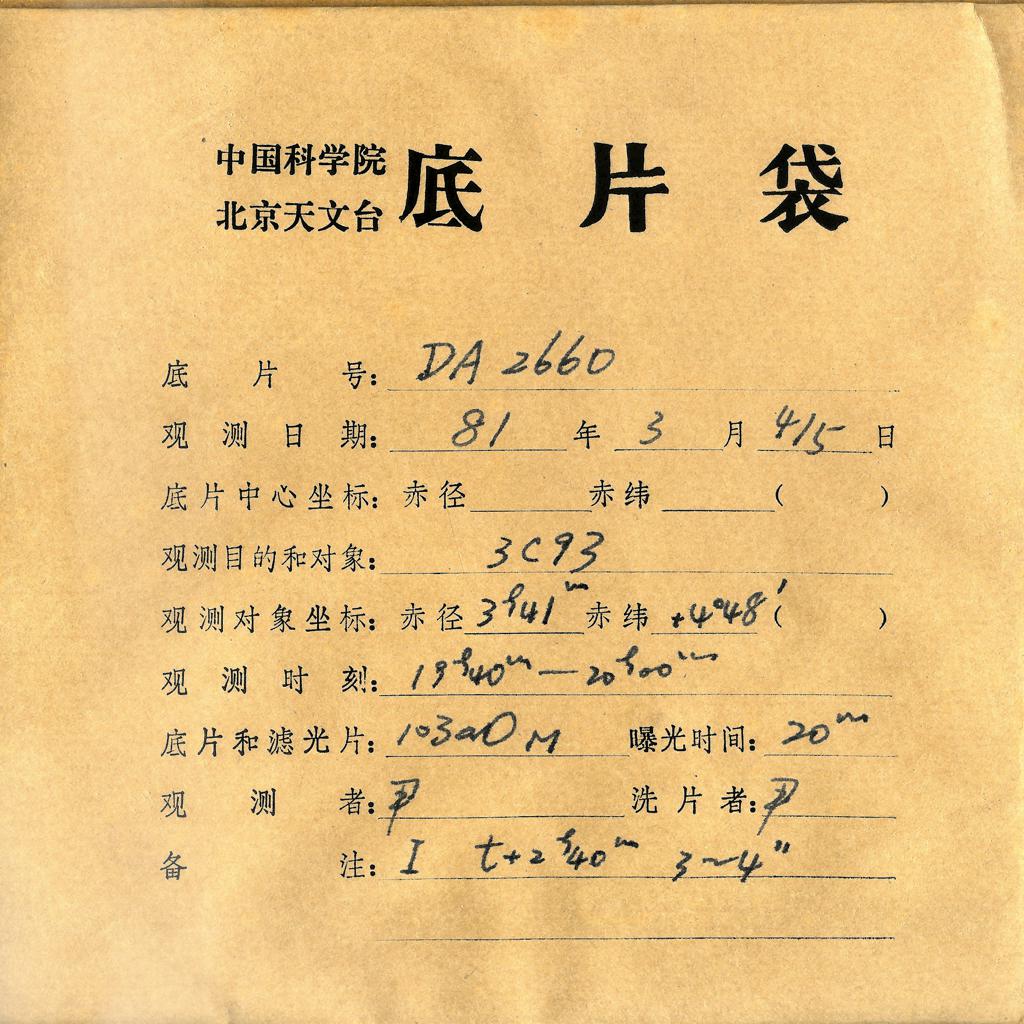 中国科学院
北京天文台
底片袋
底片号: DA 2660
观测日期: 81 年 3 月 4/5 日
底片中心坐标: 赤径 赤纬 ( )
观测目的和对象: 3C93
观测对象坐标: 赤径 3ʰ41ᵐ 赤纬 +4°48′ ( )
观测时刻: 19ʰ40ᵐ—20ʰ00ᵐ
底片和滤光片: 103aO M 曝光时间: 20ᵐ
观测者: 洗片者:
备注: I t+2ʰ40ᵐ 3~4"